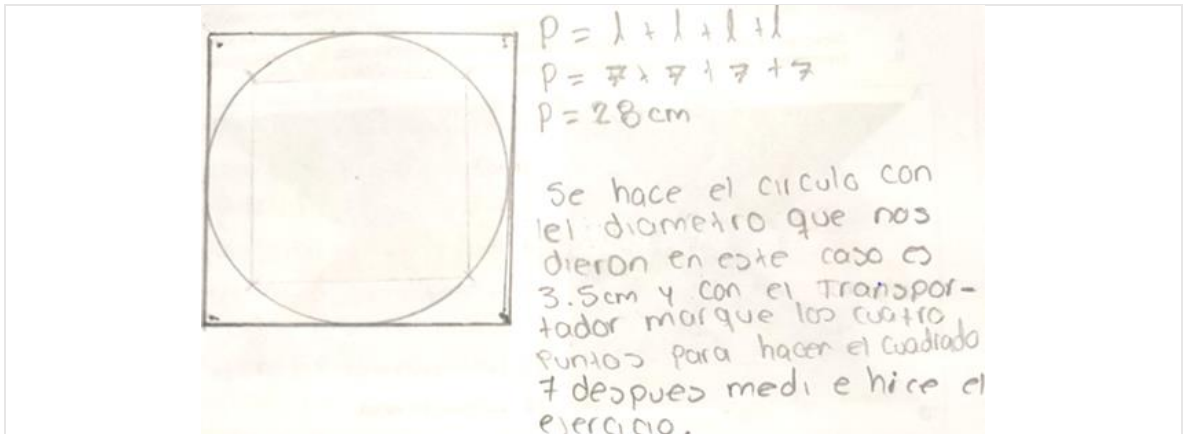 P = l + l + l + l
P = 7 + 7 + 7 + 7
P = 28 cm
Se hace el circulo con
el diametro que nos
dieron en este caso es
3.5cm y con el Transpor-
tador marque los cuatro
puntos para hacer el cuadrado
7 despues medi e hice el
ejercicio.